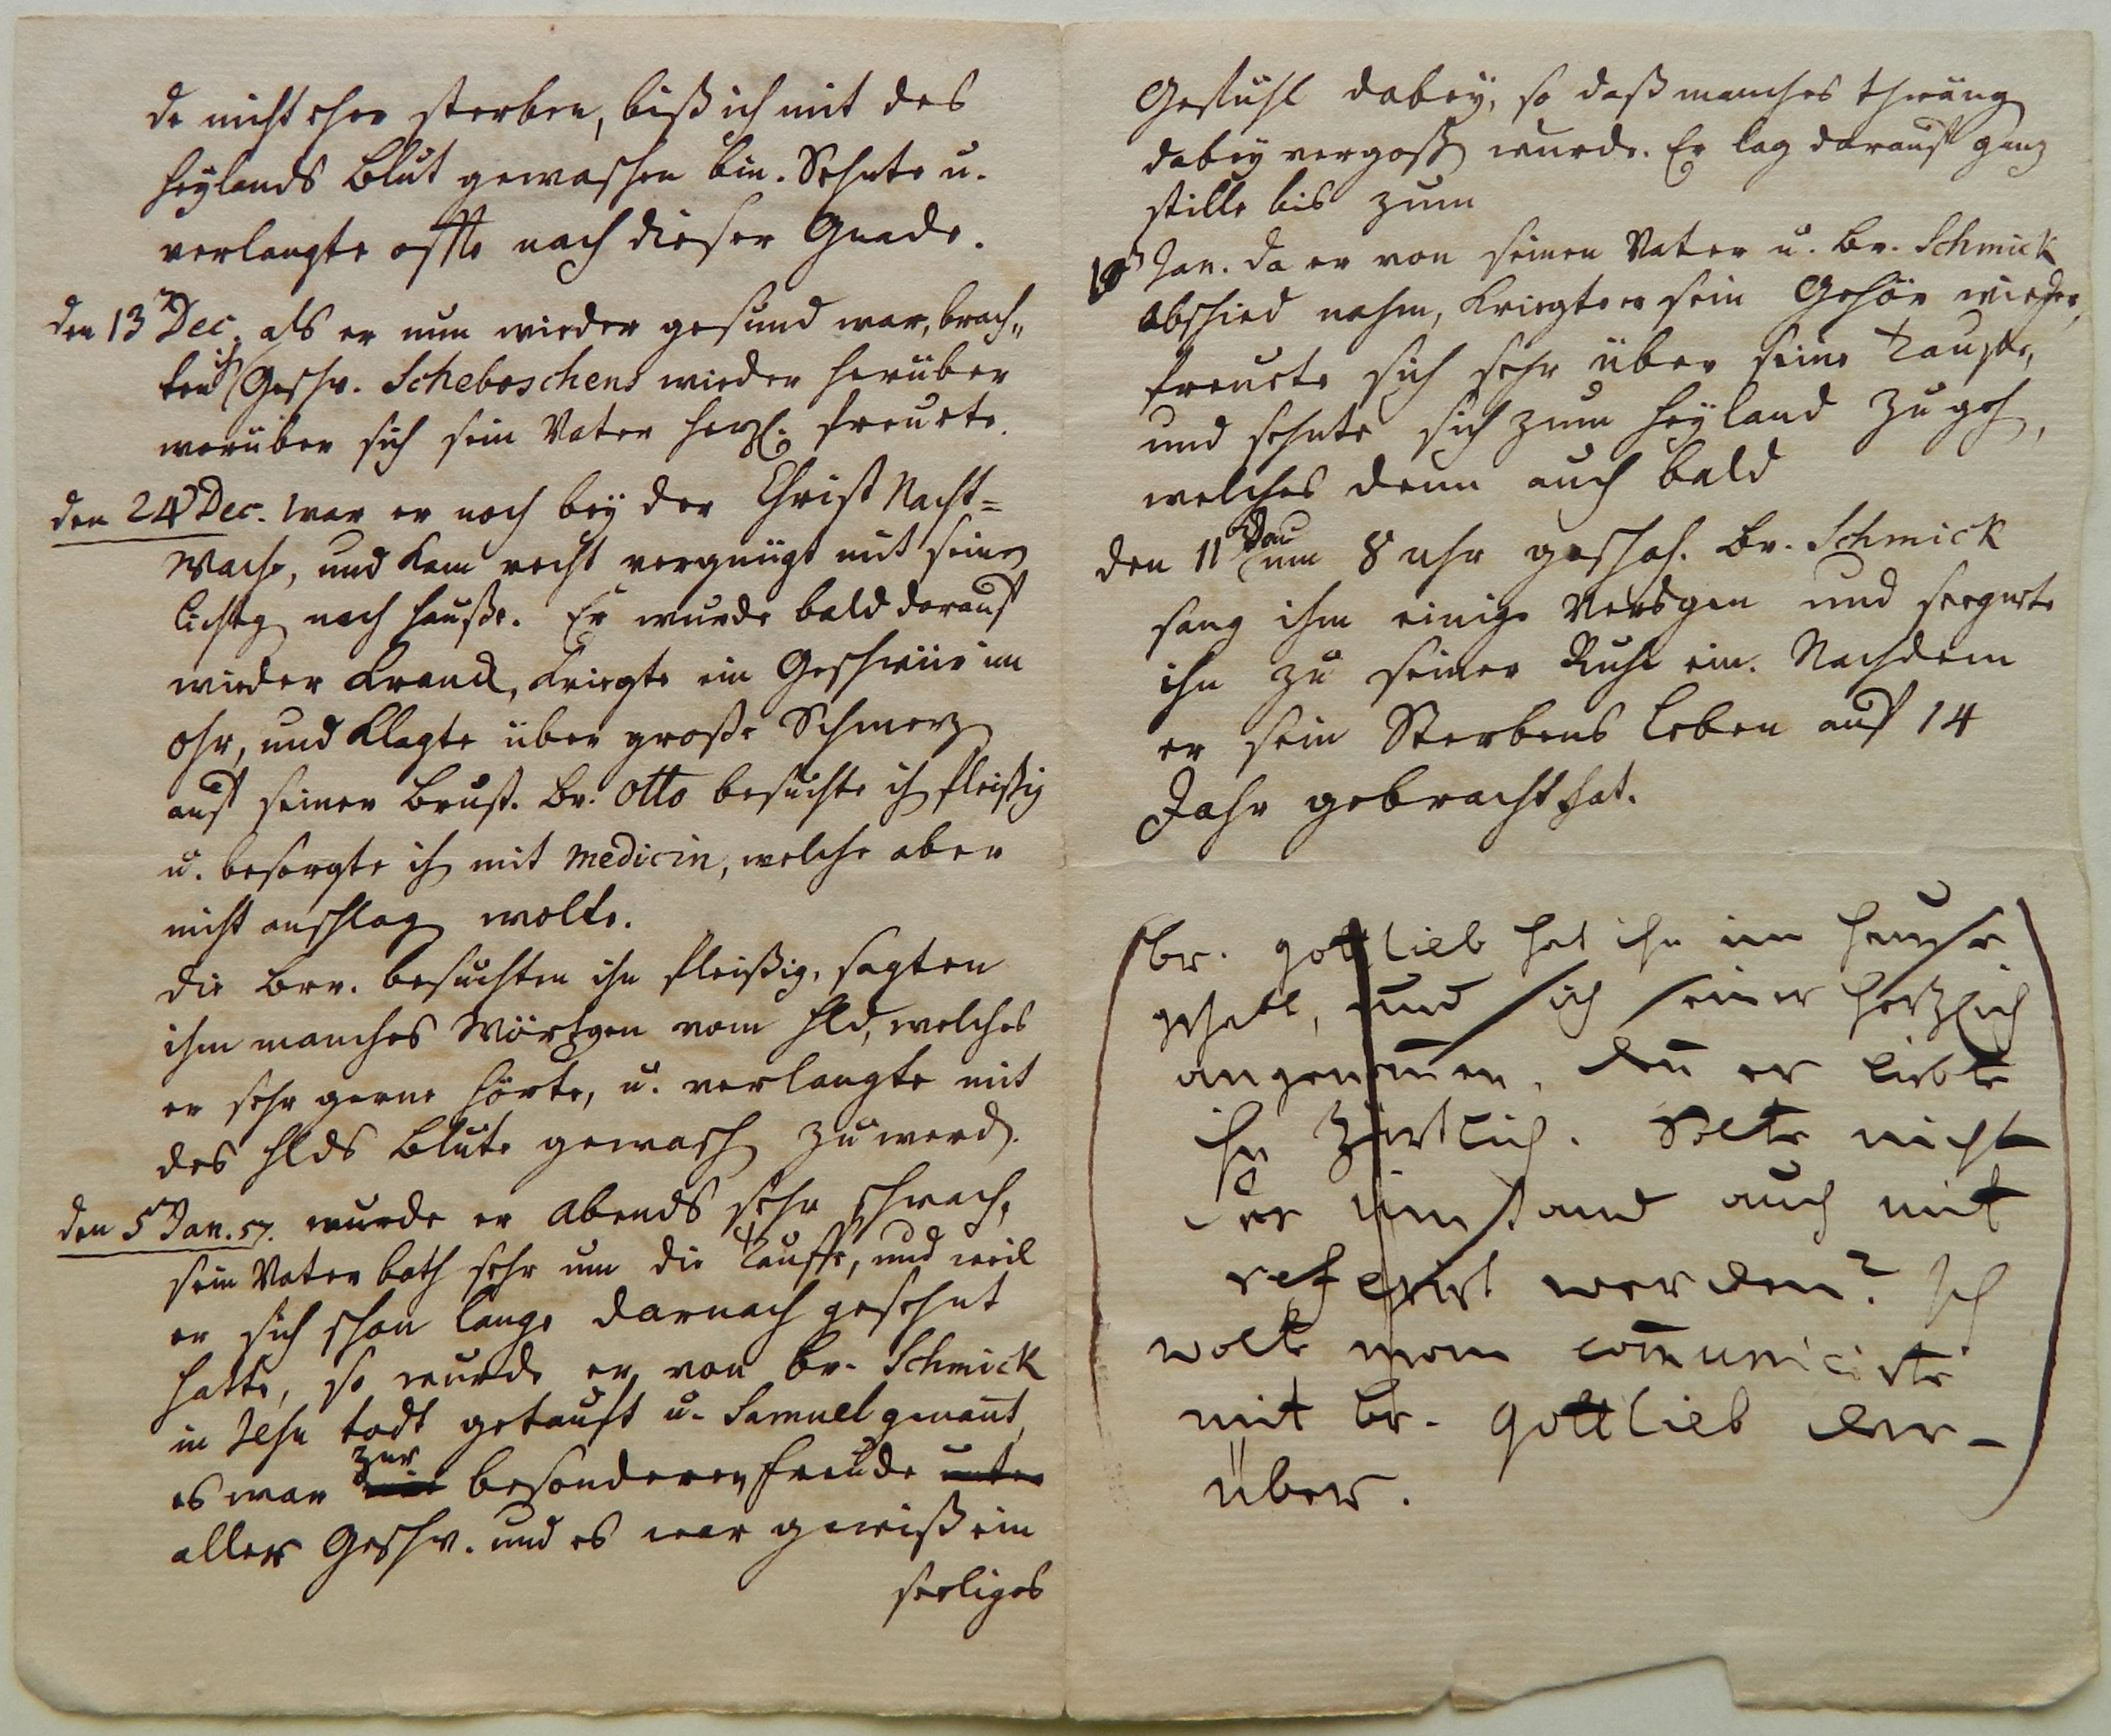 de nicht eher sterben, biß ich mit des
Heylands Blut gewaschen bin. Sehnte u.
verlangte offte nach dieser Gnade.
den 13 Dec. als er nun wieder gesund war, brach„
ten ihn Geschw. Scheboschens wieder herüber
worüber sich sein Vater herzl. freuete.
den 24 Dec. war er noch bey der Christ Nacht=
Wache, und kam recht vergnügt mit seinen
Lichtgen nach Hauße. Er wurde bald darauf
wieder kranck, kriegte ein Geschwür im
Ohr, und klagte über große Schmerzen
auf seiner Brust. Br. Otto besuchte ihn fleißig
u. besorgte ihn mit Medicin, welche aber
nicht anschlagen wolte.
die Brr. besuchten ihn fleißig, sagten
ihm manches Wörtgen vom Hld, welches
er sehr gerne hörte, u. verlangte mit
des Hlds Blute gewaschen zu werden.
den 5 Jan. 57. wurde er Abends sehr schwach,
sein Vater bath sehr um die Tauffe, und weil
er sich schon lange darnach gesehnt
hatte, so wurde er von Br. Schmick
in Jesu Todt getauft u. Samuel genant,
es war zur besonderen Freude unter
aller Geschw. und es war gewiß ein
seeliges
Gefühl dabey, so daß manches Thränen
dabey vergossen wurde. Er lag darauf ganz
stille bis zum
10 Jan. da er von seinen Vater u. Br. Schmick
Abschied nahm, kriegte er sein Gehör wieder,
freuete sich sehr über seine Tauffe,
und sehnte sich zum Heyland zu gehen,
welches denn auch bald
den 11 Jan um 8 uhr geschah. Br. Schmick
sang ihm einige Versgen und seegnete
ihn zu seiner Ruhe ein. Nachdem
er sein Sterbens Leben auf 14
Jahr gebracht hat.
(br. Gottlieb hat ihn im Hause
gehabt, und sich seiner hertzlich
angenom̄en, den̄ er liebte
ihn zärtlich. Solte nicht
der Umstand auch mit
referirt werden? Ich
wolte man com̄unicirte
mit br. Gottlieb dar-
über.)